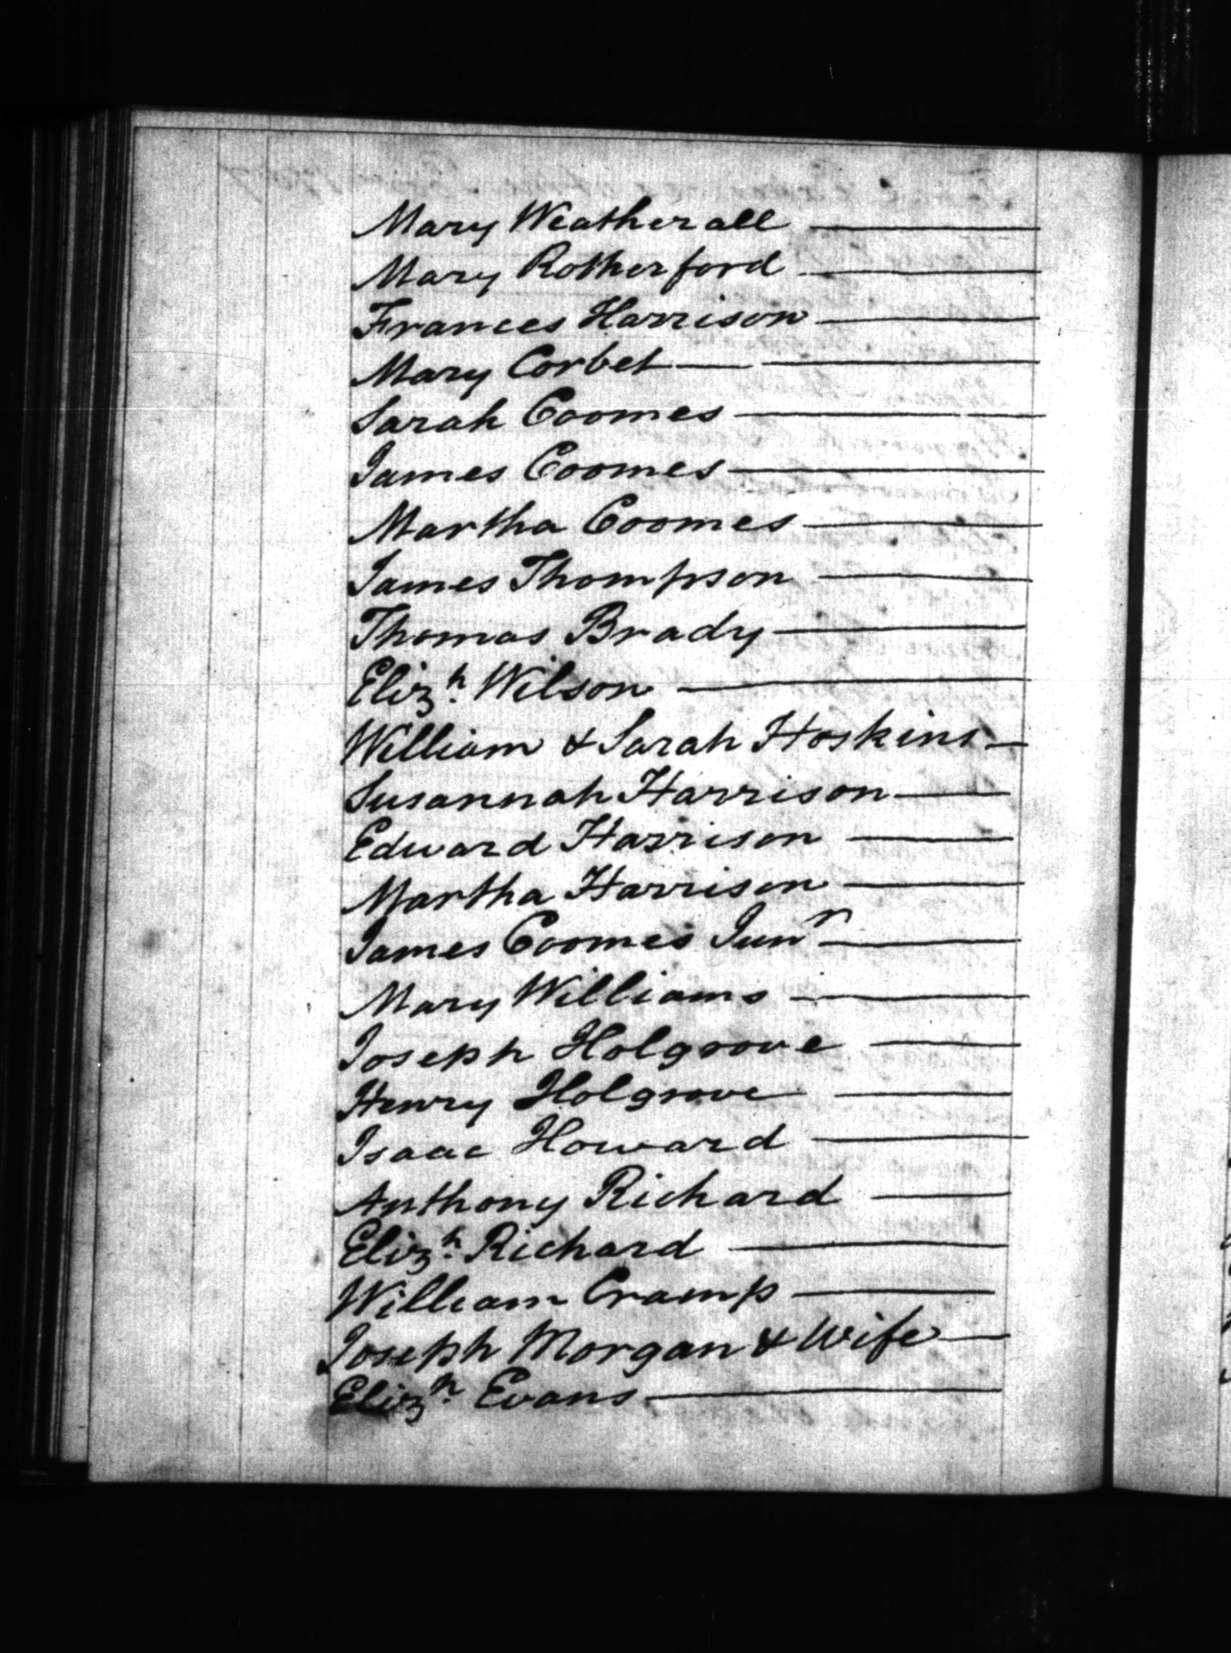 Mary Weatherall
Mary Rotherford
Frances Harrison
Mary Corbet
Sarah Coomes
James Coomes
Martha Coomes
James Thompson
Thomas Brady
Elizh. Wilson
William & Sarah Hoskins
Susannah Harrison
Edward Harrison
Martha Harrison
James Coomes Junr
Mary Williams
Joseph Holgrove
Henry Holgrove
Isaac Howard
Anthony Richard
Elizh. Richard
William Cramp
Joseph Morgan & Wife
Elizh. Evans